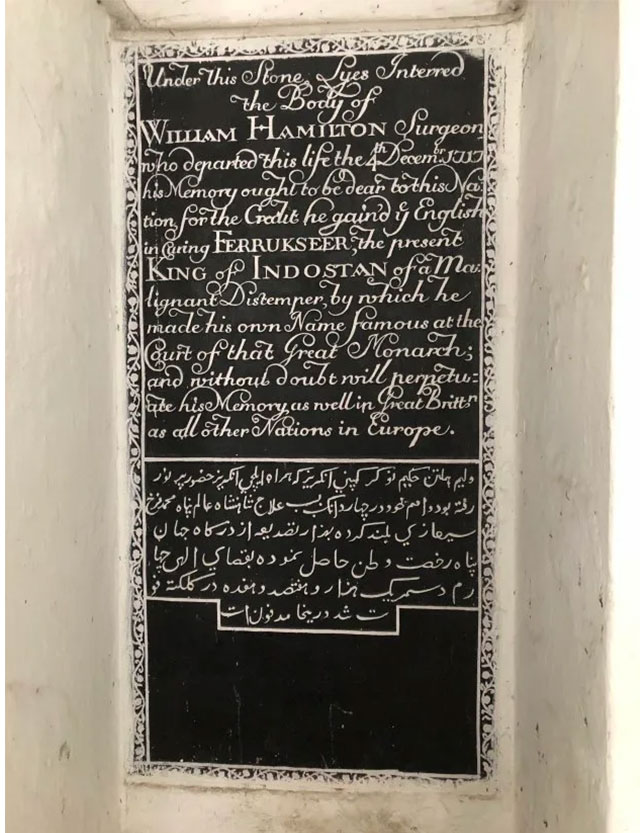 Under this Stone, Lyes Interred
the Body of
WILLIAM HAMILTON Surgeon
who departed this life the 4th Decemr. 1717
his Memory ought to be dear to this Na:
tion, for the Credit he gain'd ye English
in Curing FERRUKSEER, the present
KING of INDOSTAN of a Ma:
lignant Distemper, by which he
made his own Name famous at the
Court of that Great Monarch;
and without doubt will perpetu:
ate his Memory as well in Great Brittn
as all other Nations in Europe.
وليم هملتن حكيم نوكر كمپني انگريز كه همراه ايلچي انگريز حضور پر نور
رفته بود و اسم خود در چهار دانگ بسبب علاج شاهنشاه عالم پناه محمد فرخ
سير غازي بلند كرده بهزار تصديعه از درگاه جهان
پناه رخصت وطن حاصل نموده بقضاي الهي چها
رم دسمبر يك هزار و هفتصد و هفده در كلكتة فو
ت شد درينجا مدفون است